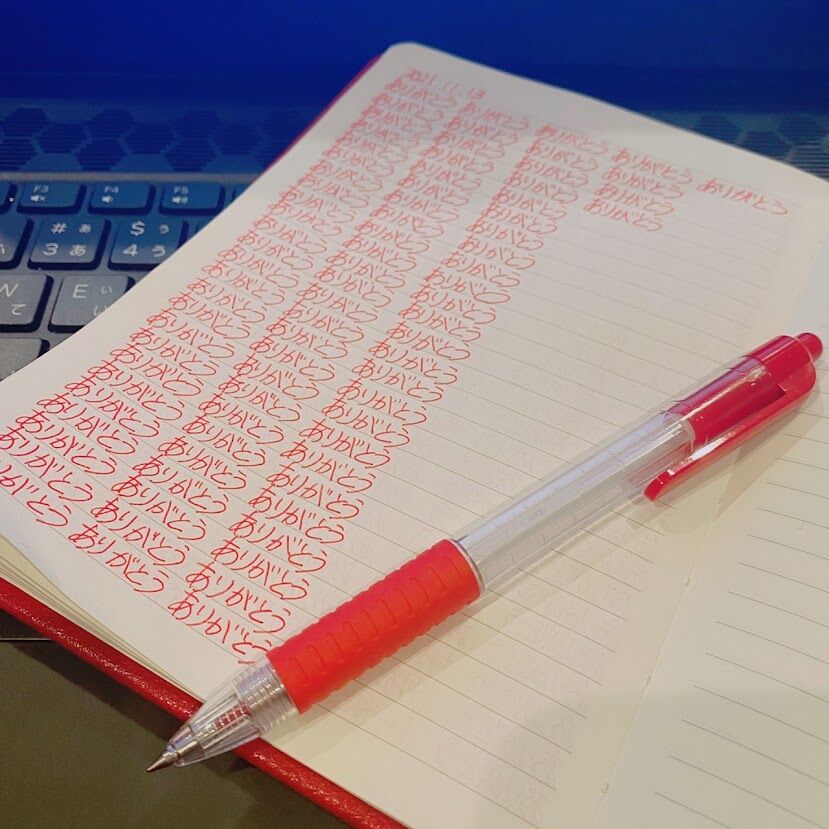 2021.11.13
ありがとう ありがとう ありがとう ありがとう ありがとう
ありがとう ありがとう ありがとう ありがとう
ありがとう ありがとう ありがとう ありがとう
ありがとう ありがとう ありがとう
ありがとう ありがとう ありがとう
ありがとう ありがとう ありがとう
ありがとう ありがとう ありがとう
ありがとう ありがとう ありがとう
ありがとう ありがとう ありがとう
ありがとう ありがとう ありがとう
ありがとう ありがとう ありがとう
ありがとう ありがとう ありがとう
ありがとう ありがとう ありがとう
ありがとう ありがとう ありがとう
ありがとう ありがとう ありがとう
ありがとう ありがとう ありがとう
ありがとう ありがとう ありがとう
ありがとう ありがとう ありがとう
ありがとう ありがとう ありがとう
ありがとう ありがとう ありがとう
F3 F4 F5
# ぁ $ ぅ
3 あ 4 う
W E ぃ
て い